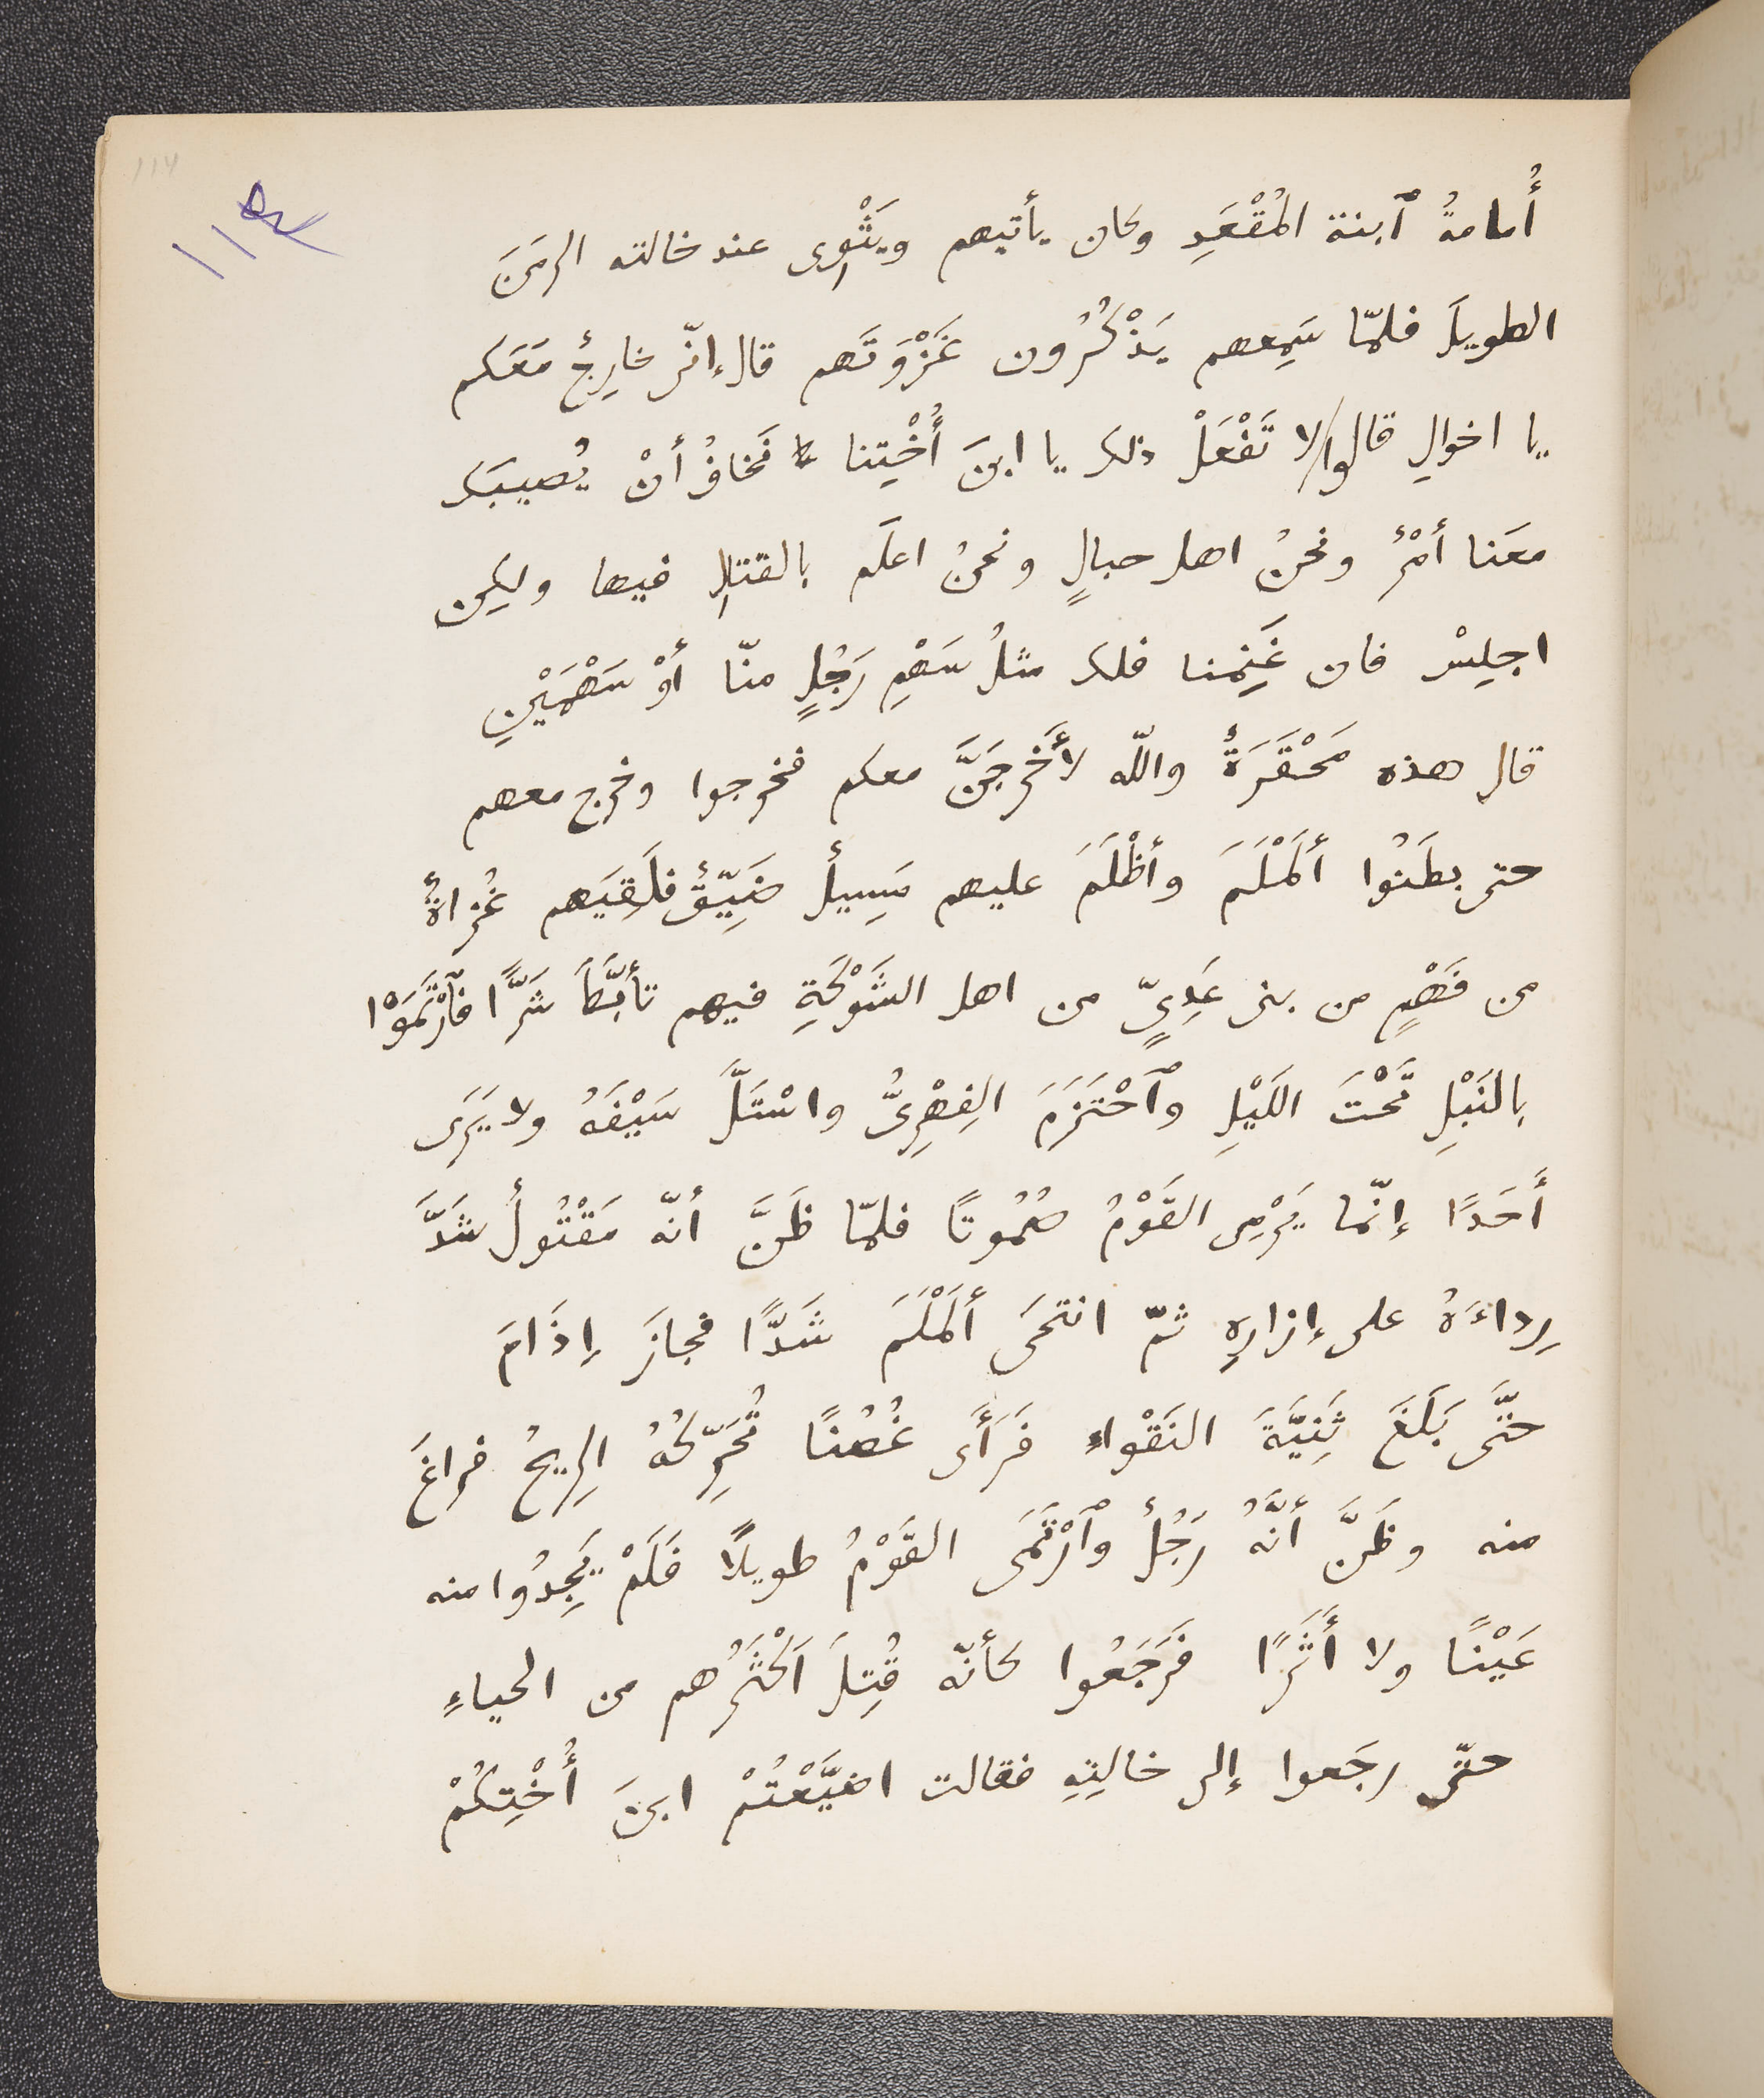 أُمامةُ ٱبنة المُقْعَدِ وكان يأتيهم ويَثْوِى عند خالته الزمَنَ
الطويلَ فلمّا سَمِعهم يَذْكُرُون غَزْوَتَهم قال إنّى خارِجٌ مَعَكم
يا اخوالِ قالوا لا تَفْعَلْ ذلك يا ابنَ أُخْتِنا نَخافُ أنْ يُصيبَك
معَنا أمْرٌ ونحنُ اهل جبالٍ ونحنُ اعلَم بالقتالِ فيها ولكِن
اجلِسْ فان غَنِمنا فلك مثلُ سَهْمِ رَجُلٍ منّا أوْ سَهْمَيْنِ
قال هذه مَحْقَرَةٌ والله لأَخْرجَنَّ معكم فخرجوا وخرج معهم
حتى بطَنُوا أَلَمْلَمَ وأَظْلَمَ عليهم مَسِيلٌ ضَيِّقٌ فلَقِيَهم غُزاةٌ
من فَهْمٍ من بنى عَدِىٍّ من اهل الشَوْكَةِ فيهم تأبَّطَ شَرًّا فٱرْتَمَوْا
بالنَبْلِ تَحْتَ اللَيْلِ وٱحْتَزَمَ الفِهْرِىُّ واسْتَلَّ سَيْفَهُ ولا يَرَى
أَحَدًا إنّما يَرْمِى القَوْمُ صُمُوتًا فلمّا ظَنَّ أنّه مَقْتُولٌ شَدَّ
رِداءَهُ على إزارِهِ ثمّ انتحَى أَلَمْلَمَ شَدًّا فجازَ إِذَامَ
حتَّى بَلَغَ ثَنِيَّةَ النَقْواءِ فَرَأَى غُصْنًا تُحَرِّكُهُ الرِيحُ فراغَ
منه وظَنَّ أنَّهُ رَجُلٌ وٱرْتَمَى القَوْمُ طويلًا فَلَمْ يَجِدُوا منه
عَيْنًا ولا أَثَرًا فَرَجَعُوا كأنّه قُتِلَ اَكْثَرُهم من الحياءِ
حتّى رجَعوا إلى خالتِهِ فقالت اضَيَّعْتُمْ ابنَ أُخْتِكُمْ